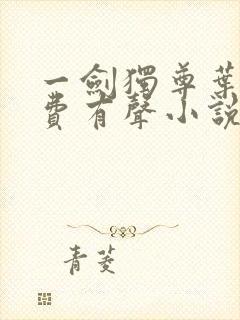 一劍獨尊葉
費有聲小說
青菱